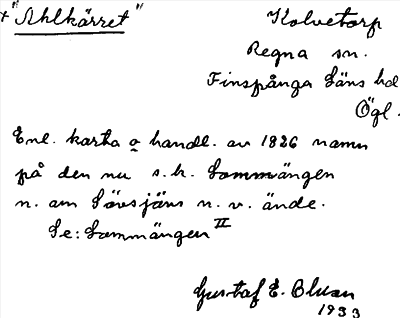 + "Ahlkärret"
Kolvetorp
Regna sn.
Finspånga läns hd
Ögl.
Enl. karta o handl. av 1826 namn
på den nu s.k. Sommängen
n. om Lövsjöns n. v. ände.
Se: Sommängen II
Gustaf E.
1933